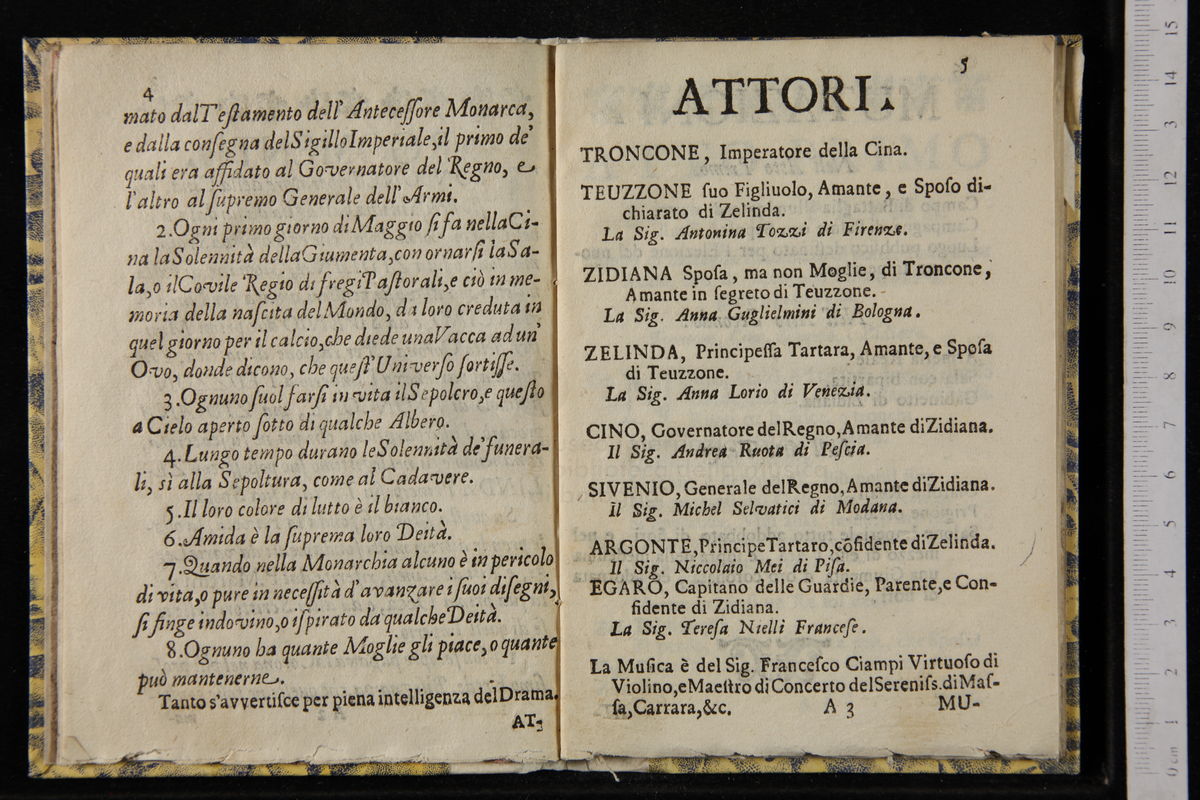 4
mato dal Teſtamento dell' Anteceſſore Monarca,
e dalla conſegna del Sigillo Imperiale, il primo de'
quali era affidato al Governatore del Regno, e
l'altro al ſupremo Generale dell'Armi.
2. Ogni primo giorno di Maggio ſi fa nella Ci-
na la Solennità della Giumenta, con ornarſi la Sa-
la, o il Covile Regio di fregi Paſtorali, e ciò in me-
moria della naſcita del Mondo, da loro creduta in
quel giorno per il calcio, che diede una Vacca ad un'
Ovo, donde dicono, che queſt'Univerſo ſortiſſe.
3. Ognuno ſuol farſi in vita il Sepolcro, e queſto
a Cielo aperto ſotto di qualche Albero.
4. Lungo tempo durano le Solennità de' funera-
li, sì alla Sepoltura, come al Cadavere.
5. Il loro colore di lutto è il bianco.
6. Amida è la ſuprema loro Deità.
7. Quando nella Monarchia alcuno è in pericolo
di vita, o pure in neceſſità d'avanzare i ſuoi diſegni,
ſi finge indovino, o iſpirato da qualche Deità.
8. Ognuno ha quante Moglie gli piace, o quante
può mantenerne.
Tanto s'avvertiſce per piena intelligenza del Drama.
AT-
5
ATTORI.
TRONCONE, Imperatore della Cina.
TEUZZONE ſuo Figliuolo, Amante, e Spoſo di-
chiarato di Zelinda.
La Sig. Antonina Tozzi di Firenze.
ZIDIANA Spoſa, ma non Moglie, di Troncone,
Amante in ſegreto di Teuzzone.
La Sig. Anna Guglielmini di Bologna.
ZELINDA, Principeſſa Tartara, Amante, e Spoſa
di Teuzzone.
La Sig. Anna Lorio di Venezia.
CINO, Governatore del Regno, Amante di Zidiana.
Il Sig. Andrea Ruota di Peſcia.
SIVENIO, Generale del Regno, Amante di Zidiana.
Il Sig. Michel Selvatici di Modana.
ARGONTE, Principe Tartaro, cõfidente di Zelinda.
Il Sig. Niccolaio Mei di Piſa.
EGARO, Capitano delle Guardie, Parente, e Con-
fidente di Zidiana.
La Sig. Tereſa Nielli Franceſe.
La Muſica è del Sig. Franceſco Ciampi Virtuoſo di
Violino, e Maeſtro di Concerto del Sereniſs. di Maſ-
ſa, Carrara, &c. A 3 MU-
0 cm 1 2 3 4 5 6 7 8 9 10 11 12 3 14 15